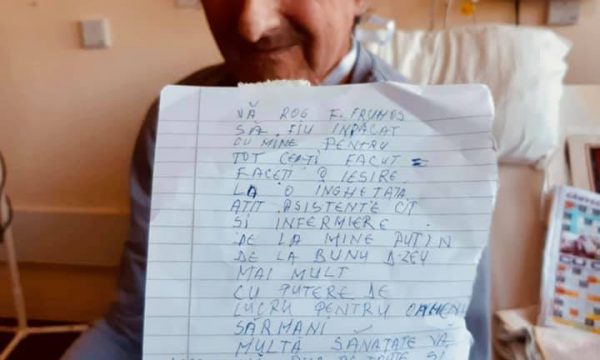 VĂ ROG F. FRUMOS
SĂ FIU INPĂCAT
CU MINE PENTRU
TOT CE-ȚI FACUT =
FACEȚI O IESIRE
LA O INGHEȚATA
ATIT ASISTENTE CIT
SI INFERMIERE
DE LA MINE PUTIN
DE LA BUNU D-ZEU
MAI MULT
CU PUTERE DE
LUCRU PENTRU OAMENI
SĂRMANI
MULTĂ SĂNATATE VĂ